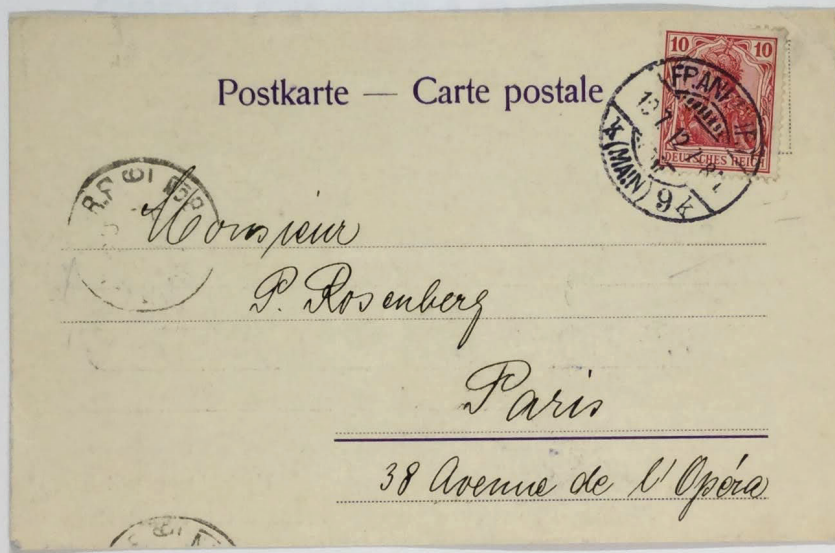 Postkarte — Carte postale
10 10
DEUTSCHES REICH
(MAIN) 9k
Monsieur
P. Rosenberg
Paris
38 Avenue de l'Opéra